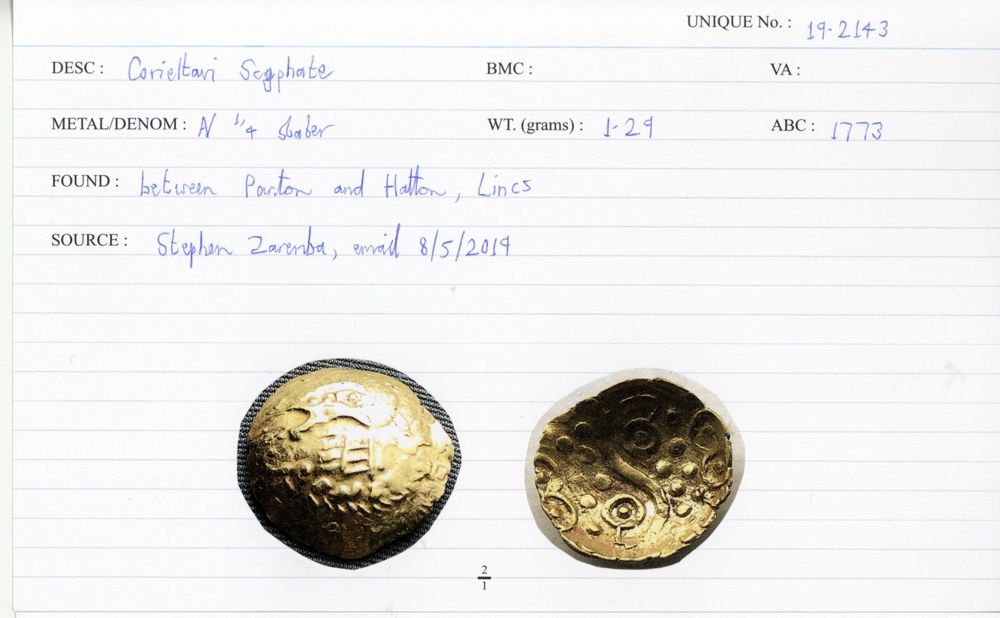 UNIQUE No. : 19-2143
DESC : Corieltavi Scyphate BMC : VA :
METAL/DENOM : N 1/4 stater WT. (grams) : 1.29 ABC : 1773
FOUND : between Panton and Hatton, Lincs
SOURCE : Stephen Zaremba, email 8/5/2019
2
1